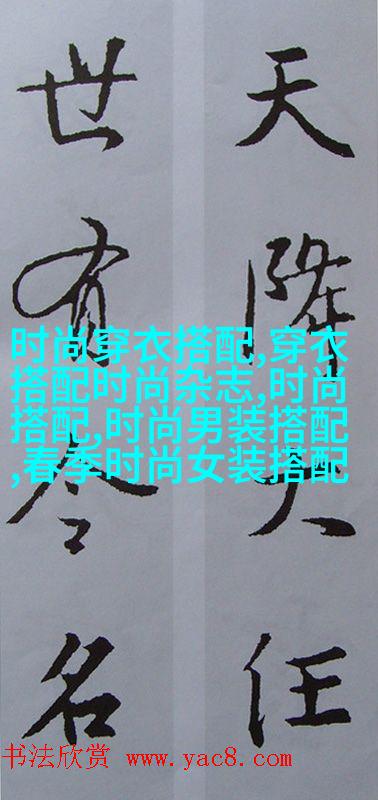 天降大任
世有令名
时尚穿衣搭配,穿衣
搭配时尚杂志,时尚
搭配,时尚男装搭配
,春季时尚女装搭配
书法欣赏 www.yac8.com